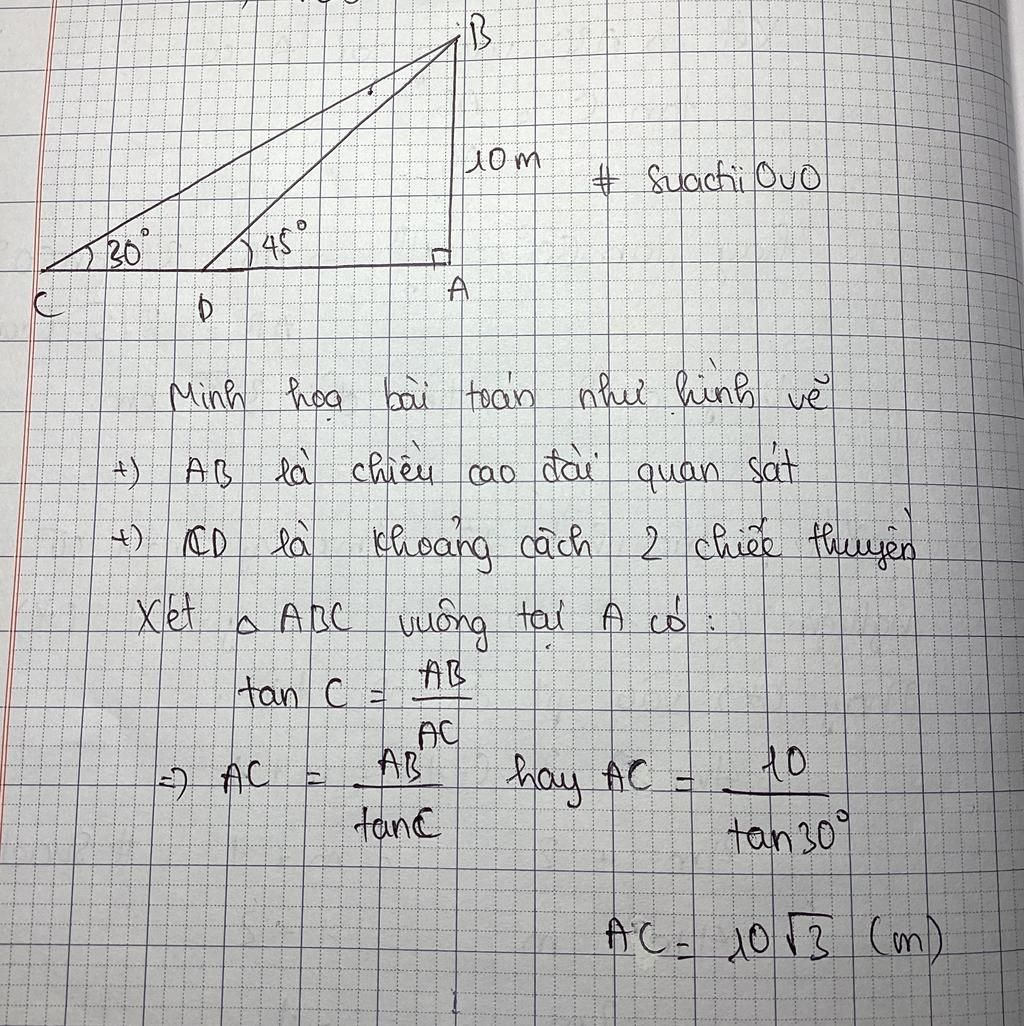 B
10m
# Suachii OuO
30°
45°
C
D
A
Minh hoạ bài toán như hình vẽ
+) AB là chiều cao đài quan sát
+) CD là khoảng cách 2 chiếc thuyền
Xét △ ABC vuông tại A có:
tan C = AB / AC
=> AC = AB / tanC hay AC = 10 / tan30°
AC = 10√3 (m)